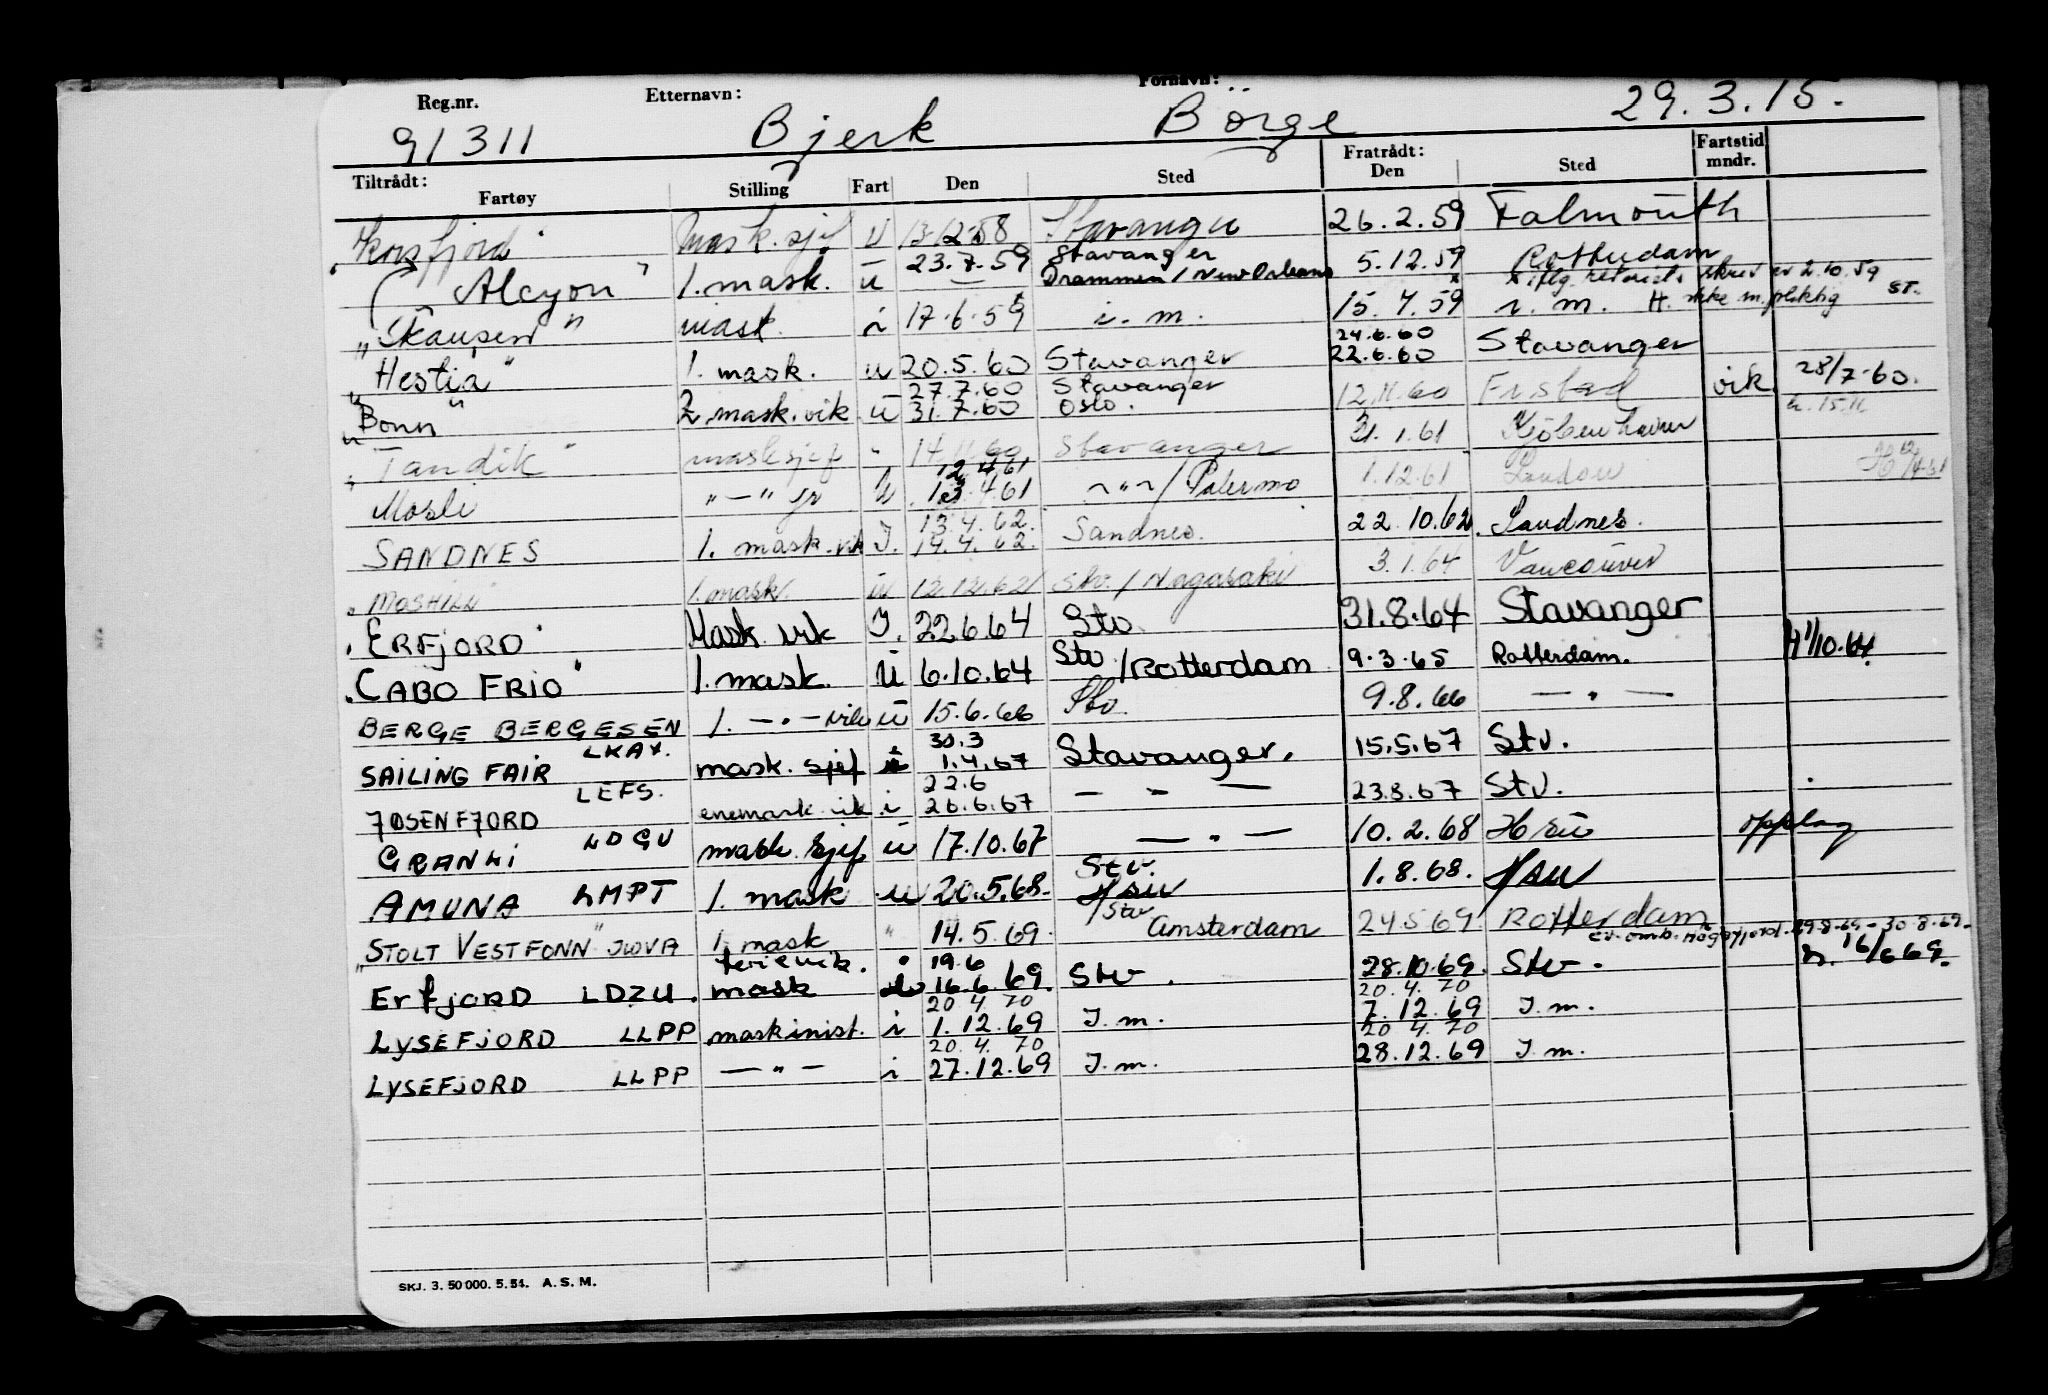 Reg.nr. Etternavn: Fornavn:
91311 Bjerk Börge 29.3.15.
Tiltrådt: Fratrådt: Fartstid mndr.
Fartøy Stilling Fart Den Sted Den Sted
"Korsfjord" Mask.sjef U 13.12.58 Stavanger 26.2.59 Falmouth
23.7.59 Stavanger
"Alcyon" 1. mask. u — Drammen / New Orleans 5.12.59 Rotterdam
skrev av 2.10.59
"Skaupen" mask. i 17.6.59 i. m. 15.7.59 i. m. H. ikke m.pliktig ST.
24.6.60
"Hestia" 1. mask. u 20.5.60 Stavanger 22.6.60 Stavanger
27.7.60 Stavanger 28/7-60.
"Bonn" 2. mask. vik u 31.7.60 Oslo. 12.11.60 Fr.stad vik. h. 15.11
"Tandik" masksjef " 14.11.60 Stavanger 31.1.61 Köbenhavn
12.4.61
Mosli " — " u 13.4.61 ~ " ~ / Palermo 1.12.61 London
13.4.62.
SANDNES 1. mask. vik I. 14.4.62. Sandnes. 22.10.62 Sandnes.
"MOSHILL" 1. mask. u 12.12.62 Stv. / Nagasaki 3.1.64 Vancouver
"ERFJORD" Mask vik I. 22.6.64 Stv 31.8.64 Stavanger
"CABO FRIO" 1. mask. U 6.10.64 Stv / Rotterdam 9.3.65 Rotterdam. H 1/10.64.
BERGE BERGESEN 1. — " — vik u 15.6.66 Stv. 9.8.66 — " —
LKAX. 30.3
SAILING FAIR mask. sjef i 1.4.67 Stavanger. 15.5.67 Stv.
LEFS. 22.6
JØSENFJORD enemask. vik i 26.6.67 — " — 23.8.67 Stv.
GRANLI LDGU mask. sjef u 17.10.67 — " — 10.2.68 Hsu opplag
Stv.
AMUNA LMPT 1. mask u 20.5.68. Hsu 1.8.68. Hsu
Stv
"STOLT VESTFONN" JWVA 1. mask " 14.5.69. Amsterdam 24.5.69 Rotterdam
ferievik. 19.6 29.8.69 - 30.8.69.
Erfjord LDZU. mask 16.6.69. Stv. 28.10.69. Stv. h. 16/6 69.
20.4.70 20.4.70
LYSEFJORD LLPP maskinist. i 1.12.69 I. m. 7.12.69 I. m.
20.4.70 20.4.70
LYSEFJORD LLPP — " — i 27.12.69 I. m. 28.12.69 I. m.
SKJ. 3. 50 000. 5. 54. A. S. M.